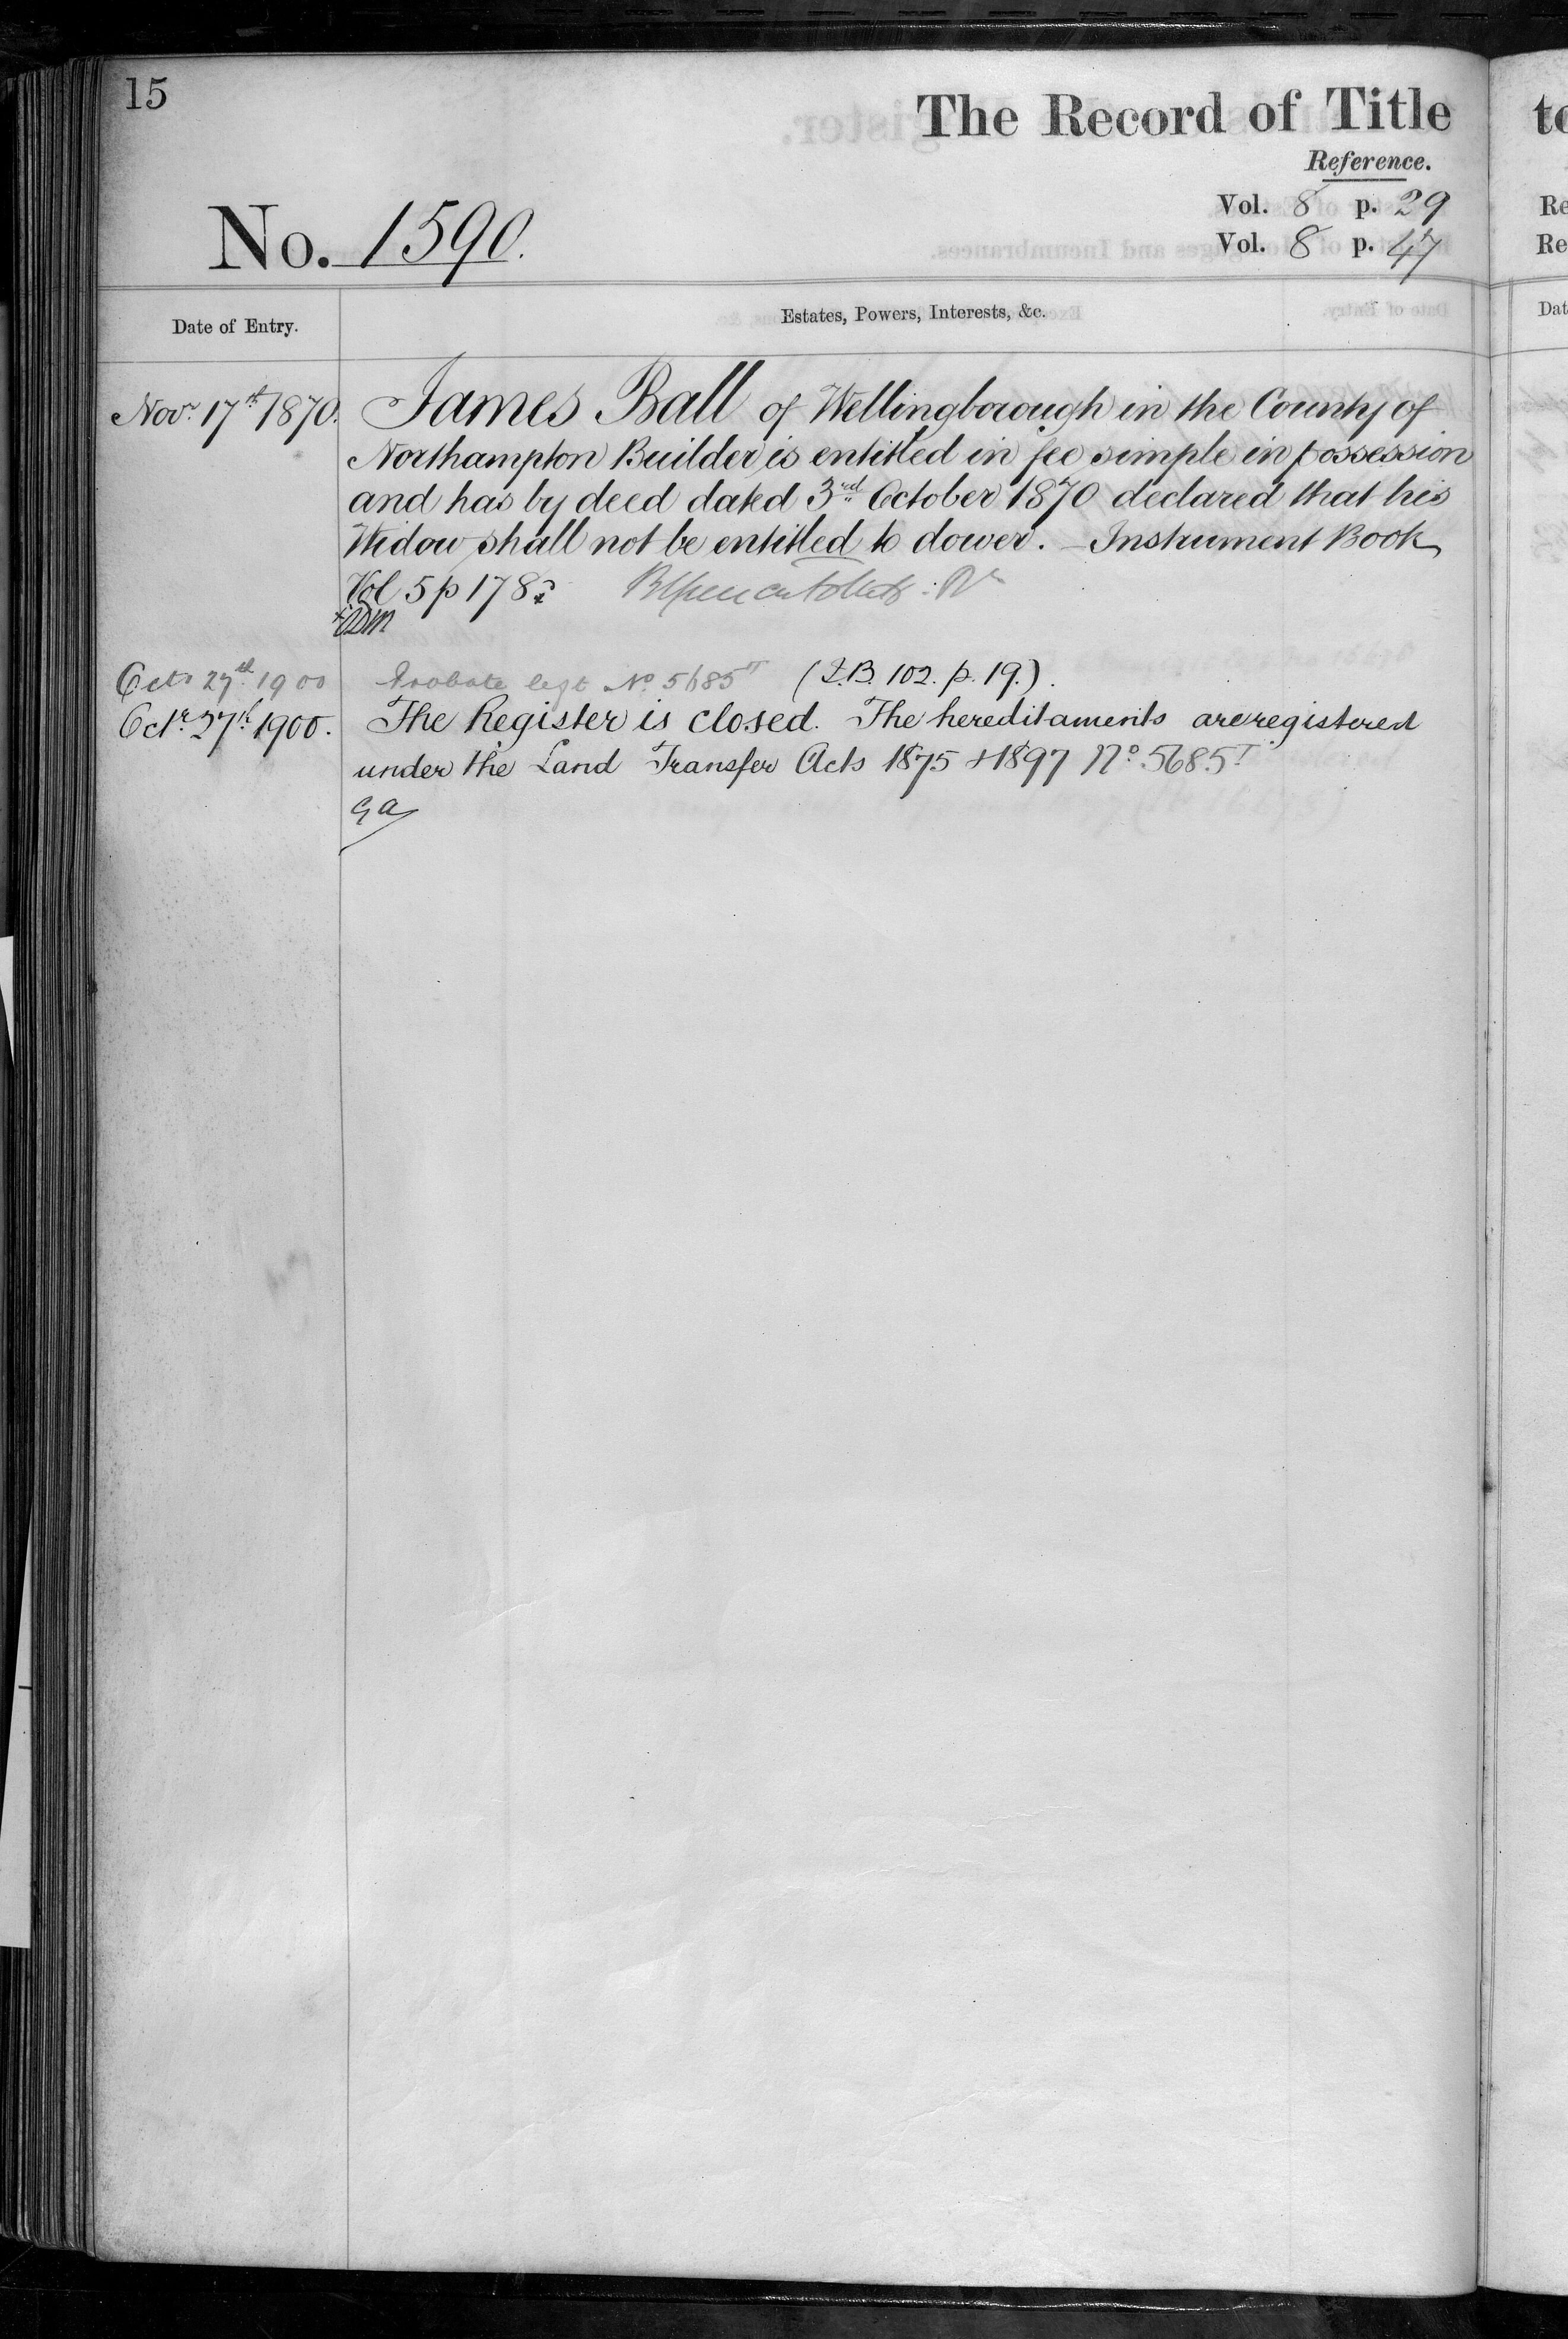 15
The Record of Title
Reference.
Vol. 8 p. 29
No. 1590.
Vol. 8 p. 47
Date of Entry.
Estates, Powers, Interests, &c.
Novr. 17th 1870. James Ball of Wellingborough in the County of
Northampton Builder is entitled in fee simple in possession
and has by deed dated 3rd October 1870 declared that his
Widow shall not be entitled to dower. – Instrument Book
Vol 5 p 178
Octr 27th 1900 Probate No. 5685T (I.B. 102. p. 19.).
Octr. 27th 1900. The Register is closed. The hereditaments are registered
under the Land Transfer Acts 1875 & 1897 No. 5685T
GA
to
Re
Re
Dat